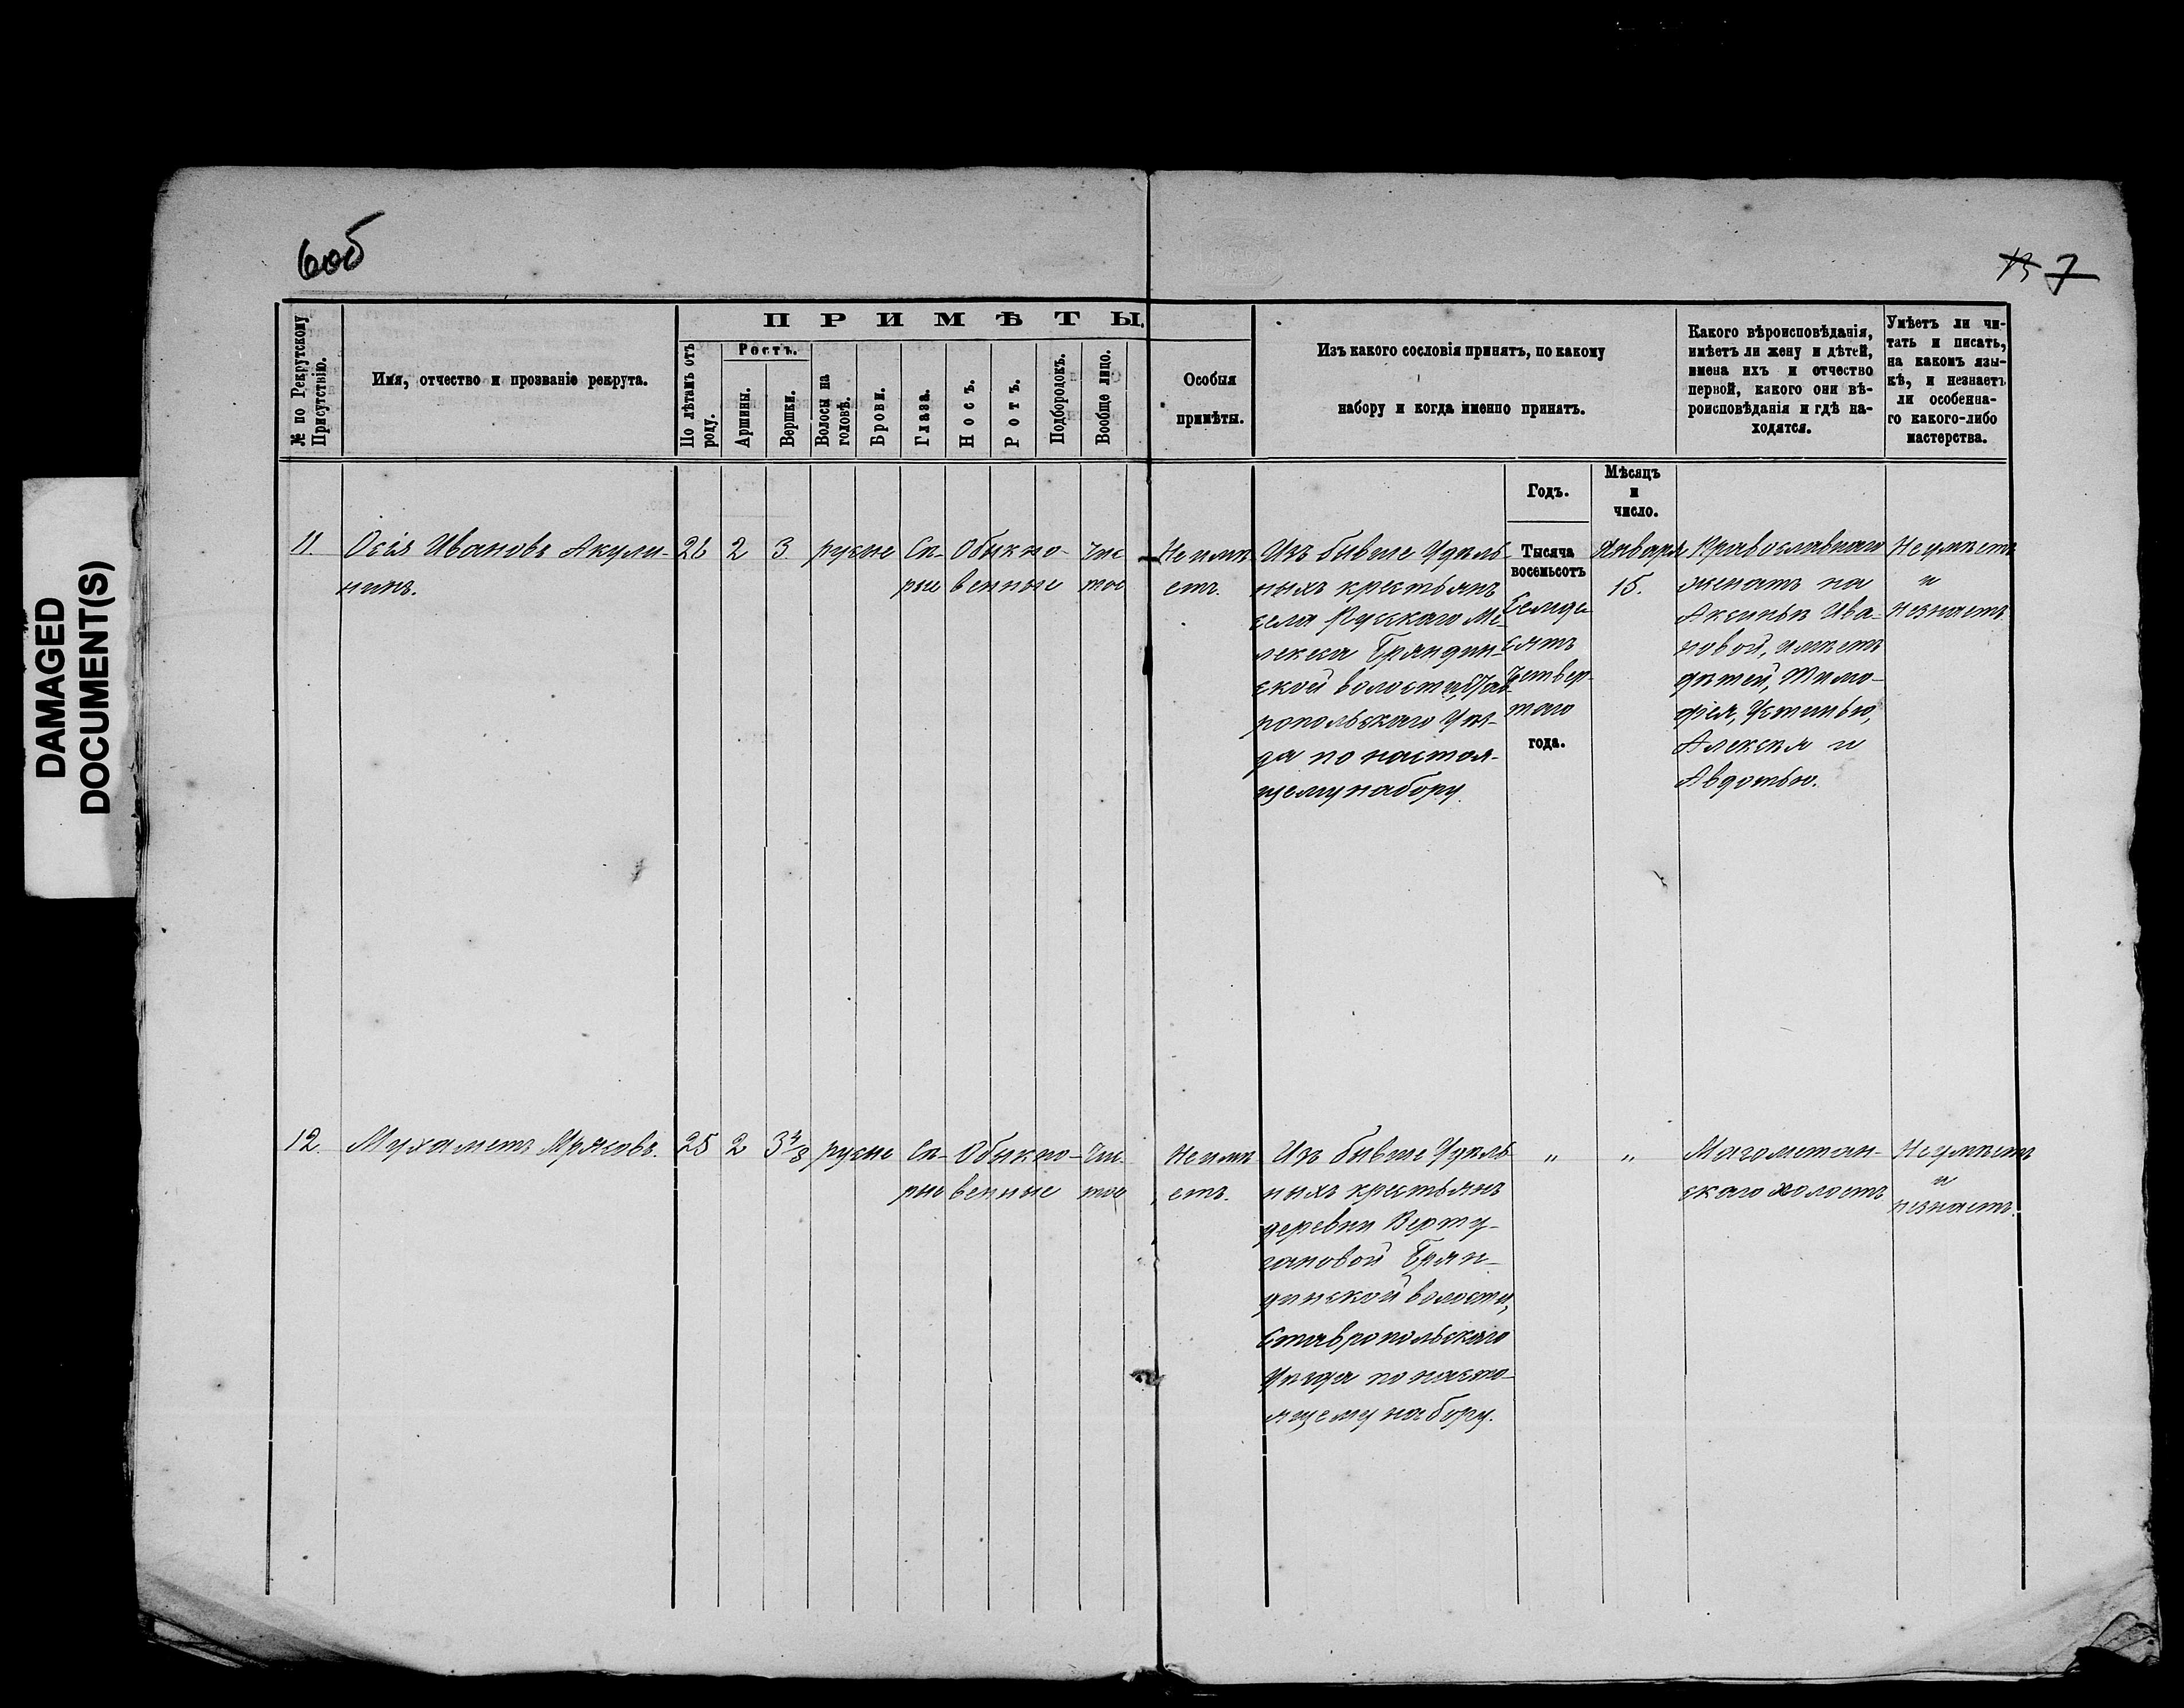 DAMAGED
DOCUMENT(S)
6об
7
№ по Рекрутскому
Присутствію.
Имя, отчество и прозваніе рекрута.
ПРИМѢТЫ.
По лѣтамъ отъ
роду.
Ростъ.
Аршины.
Вершки.
Волосы на
головѣ.
Брови.
Глаза.
Носъ.
Ротъ.
Подбородокъ.
Вообще лицо.
Особыя
примѣты.
Изъ какого сословія принятъ, по какому
набору и когда именно принятъ.
Какого вѣроисповѣданія,
имѣетъ ли жену и дѣтей,
имена ихъ и отчество
первой, какого они вѣ-
роисповѣданія и гдѣ на-
ходятся.
Умѣетъ ли чи-
тать и писать,
на какомъ язы-
кѣ, и незнаетъ
ли особенна-
го какого-либо
мастерства.
Годъ.
Мѣсяцъ
и
число.
11.
Осія Ивановъ Акули-
нинъ.
2
3
русые
Сѣ-
рые
Обыкно-
венные
Чис
тое
Не имѣ
етъ.
Изъ бывше Удѣль-
ныхъ крестьянъ
села Русскаго Ме-
лекеса Бряндин-
ской волости, Став-
ропольскаго Уѣз-
да по настоя-
щему набору.
Тысяча
восемьсотъ
Семьде
сятъ
четвер-
таго
года.
Января
15.
Православнаго
женатъ на
Аксиньѣ Ива-
новой, имѣетъ
дѣтей, Тимо-
фея, Устинью,
Алексѣя и
Авдотью.
Неумѣетъ
и
незнаетъ.
12.
Мухаметъ Мрясовъ.
25
2
3 4/8
русые
Сѣ-
рые
Обыкно-
венные
Чис-
тое
Не имѣ
етъ.
Изъ бывше Удѣль
ныхъ крестьянъ
деревни Верту-
гановой Брян-
динской волости,
Ставропольскаго
Уѣзда по насто-
ящему набору.
"
"
Магометан-
скаго холостъ
Неумѣетъ
и
незнаетъ.